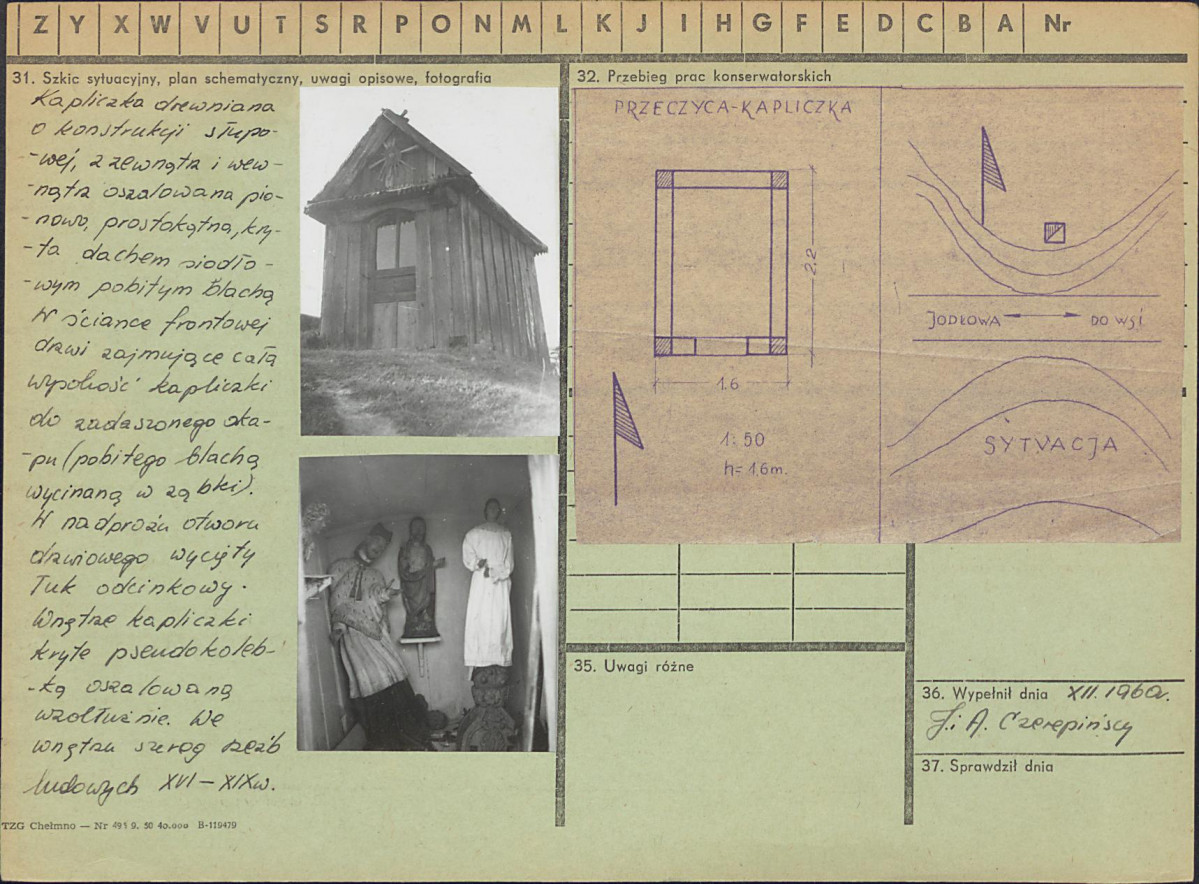 Z Y X W V U T S R P O N M L K J I H G F E D C B A Nr
31. Szkic sytuacyjny, plan schematyczny, uwagi opisowe, fotografia
Kapliczka drewniana
o konstrukcji słupo-
-wej, z zewnątrz i wew-
-nątrz oszalowana pio-
-nowo, prostokątna, kry-
-ta dachem siodło-
-wym pobitym blachą
W ściance frontowej
drzwi zajmujące całą
wysokość kapliczki
do zadaszonego oka-
-pu (pobitego blachą
wycinaną w ząbki).
W nadprożu otworu
drzwiowego wycięty
łuk odcinkowy.
Wnętrze kapliczki
kryte pseudokoleb-
-ką oszalowaną
wzdłużnie. We
wnętrzu szereg rzeźb
ludowych XVI-XIXw.
TZG Chełmno — Nr 491 9. 50 40.000 B-119479
32. Przebieg prac konserwatorskich
PRZECZYCA-KAPLICZKA
2.2
1.6
1:50
h= 1,6m.
JODŁOWA
DO WSI
SYTUACJA
35. Uwagi różne
36. Wypełnił dnia XII. 1960r.
J. i A. Czerepińscy
37. Sprawdził dnia